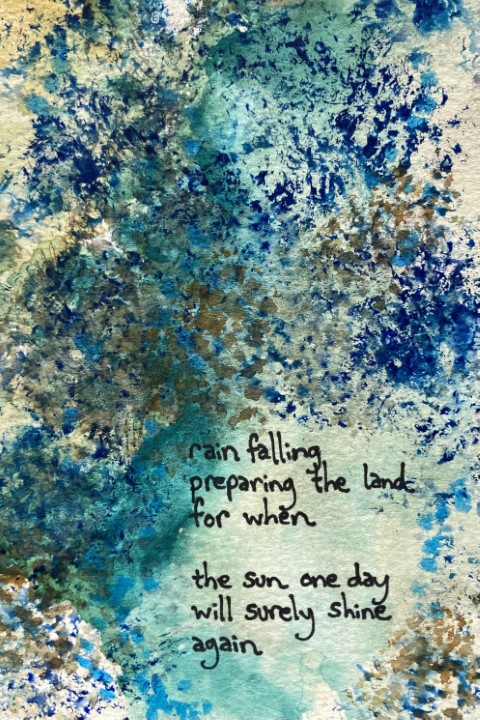 rain falling
preparing the land
for when
the sun one day
will surely shine
again